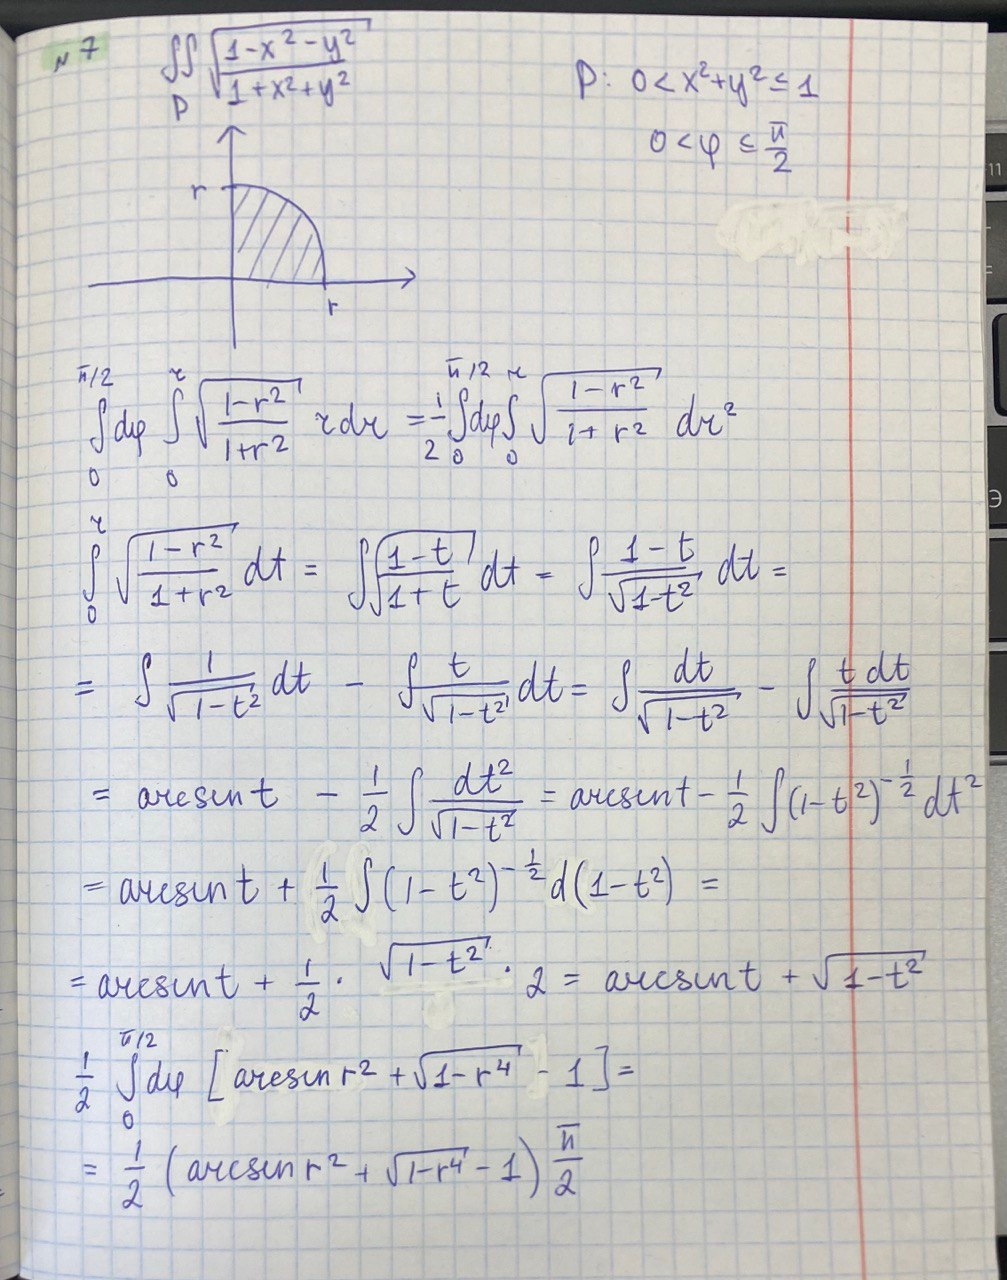 № 7 ∬ √((1-x²-y²)/(1+x²+y²)) P: 0 < x²+y² ≤ 1
P
0 < φ ≤ π/2
r
r
∫₀^{π/2} dφ ∫₀^r √((1-r²)/(1+r²)) r dr = 1/2 ∫₀^{π/2} dφ ∫₀^r √((1-r²)/(1+r²)) dr²
∫₀^r √((1-r²)/(1+r²)) dt = ∫ √((1-t)/(1+t)) dt = ∫ (1-t)/√(1-t²) dt =
= ∫ 1/√(1-t²) dt - ∫ t/√(1-t²) dt = ∫ dt/√(1-t²) - ∫ t dt/√(1-t²)
= arcsin t - 1/2 ∫ dt²/√(1-t²) = arcsin t - 1/2 ∫ (1-t²)^{-1/2} dt²
= arcsin t + 1/2 ∫ (1-t²)^{-1/2} d(1-t²) =
= arcsin t + 1/2 · √(1-t²) · 2 = arcsin t + √(1-t²)
1/2 ∫₀^{π/2} dφ [arcsin r² + √(1-r⁴) - 1] =
= 1/2 (arcsin r² + √(1-r⁴) - 1) π/2